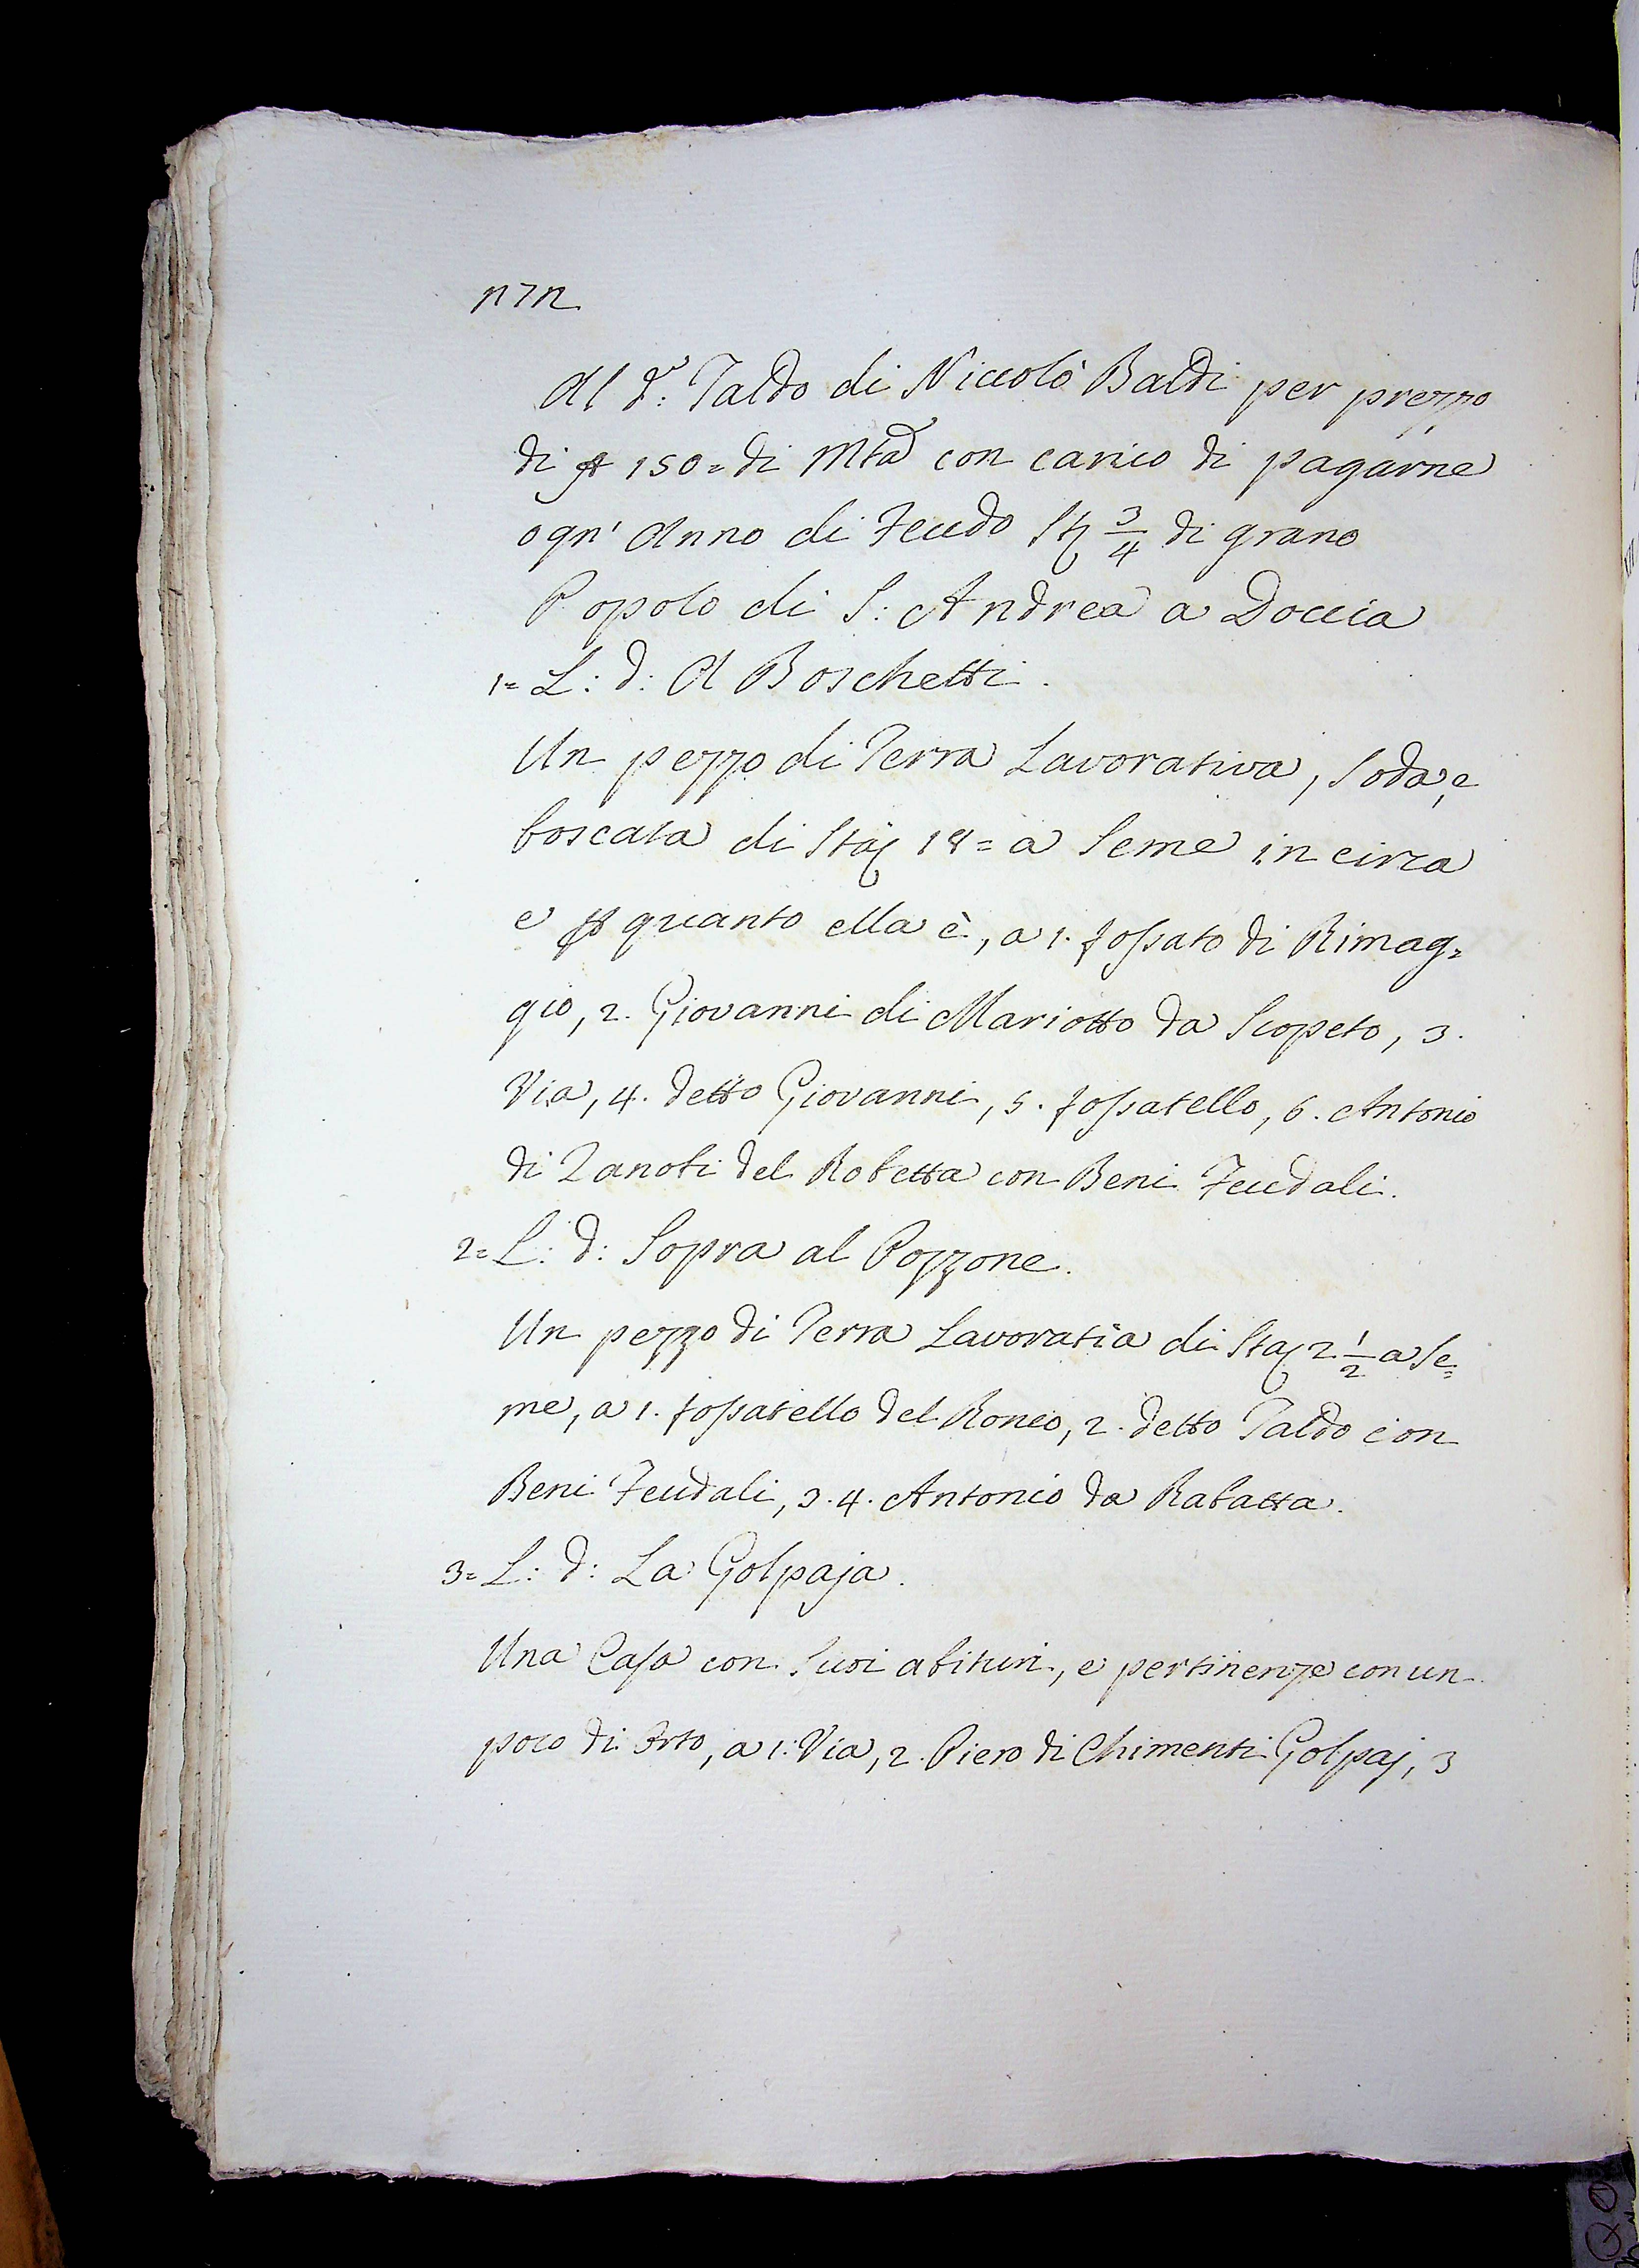 n7n
Al d.º Taldo di Niccolò Baldi per prezzo
di 150= di Mta con carico di pagarne
ogn' Anno di Feudo 3/4 di grano
Popolo di S: Andrea a Doccia
1= L: d: A Boschetti.
Un pezzo di Terra Lavorativa, Soda, e
boscata di Sta 18= a Seme in circa
e quanto ella è, a 1. fossato di Rimag=
gio, 2. Giovanni di Mariotto da Scopeto, 3.
Via, 4. detto Giovanni, 5. fossatello, 6. Antonio
di Zanobi del Robetta con Beni Feudali.
2= L: d: Sopra al Pozzone.
Un pezzo di Terra Lavoratia di Sta 2 1/2 a Se=
me, a 1. fossatello del Ronco, 2. detto Taldo con
Beni Feudali, 3. 4. Antonio da Rabatta.
3= L: d: La Golpaja.
Una Casa con Suoi abituri, e pertinenze con un
poco di Orto, a 1. Via, 2. Piero di Chimenti Golpaj, 3